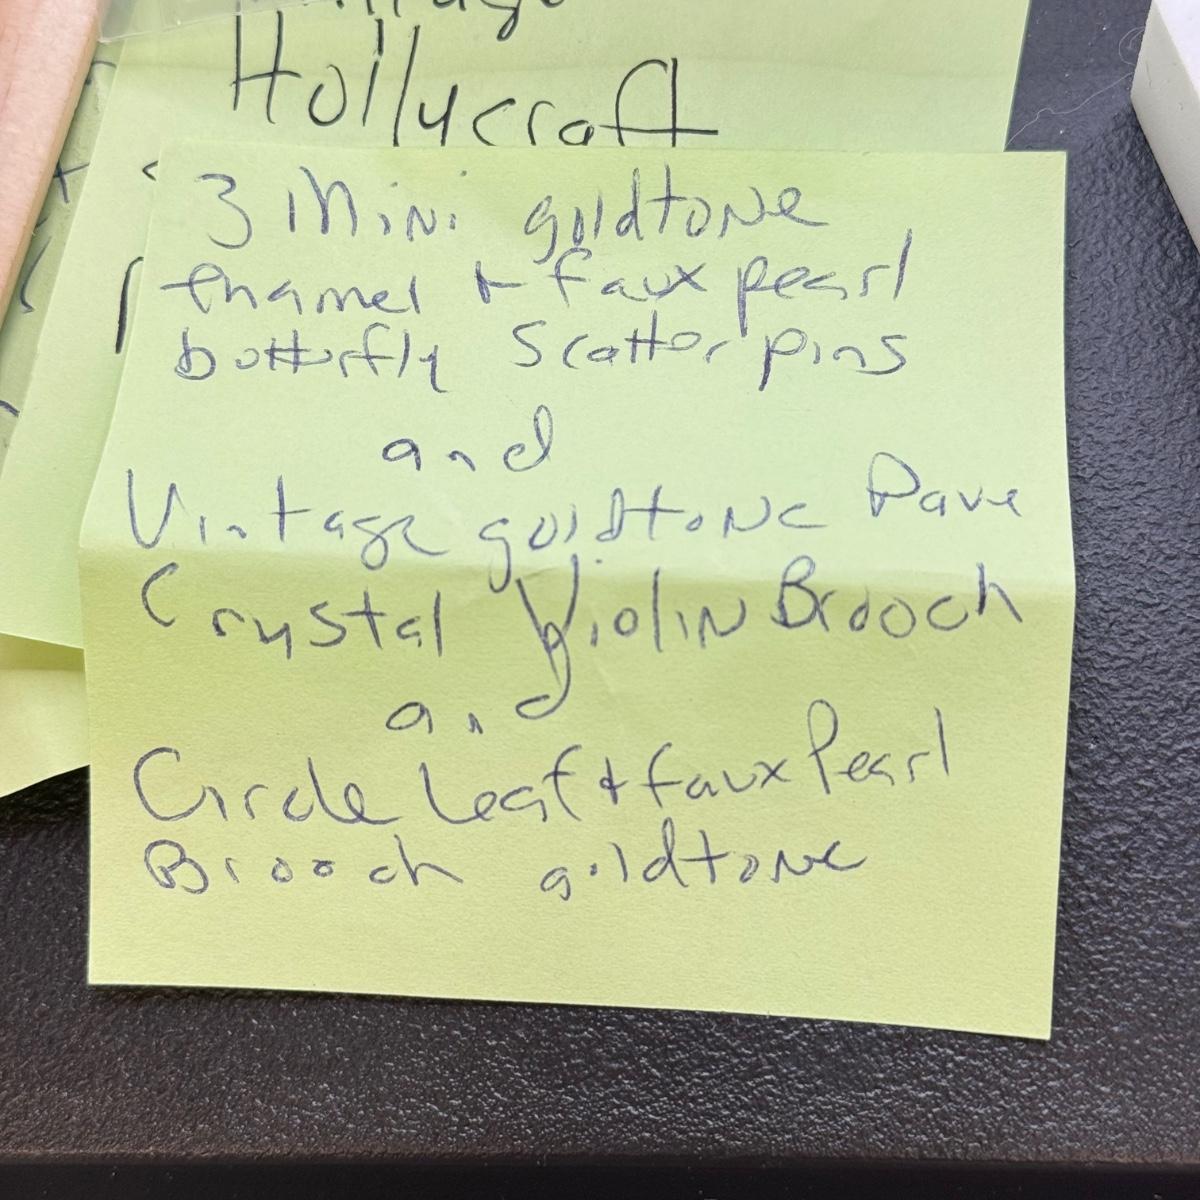 Hollycraft
3 Mini goldtone
enamel + faux pearl
butterfly Scatter pins
and
Vintage goldtone Pave
Crystal Violin Brooch
and
Circle Leaf + faux Pearl
Brooch goldtone